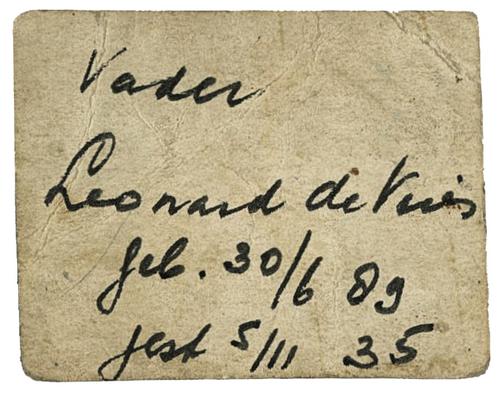 Vader
Leonard de Vries
geb. 30/6 89
gest 5/11 35